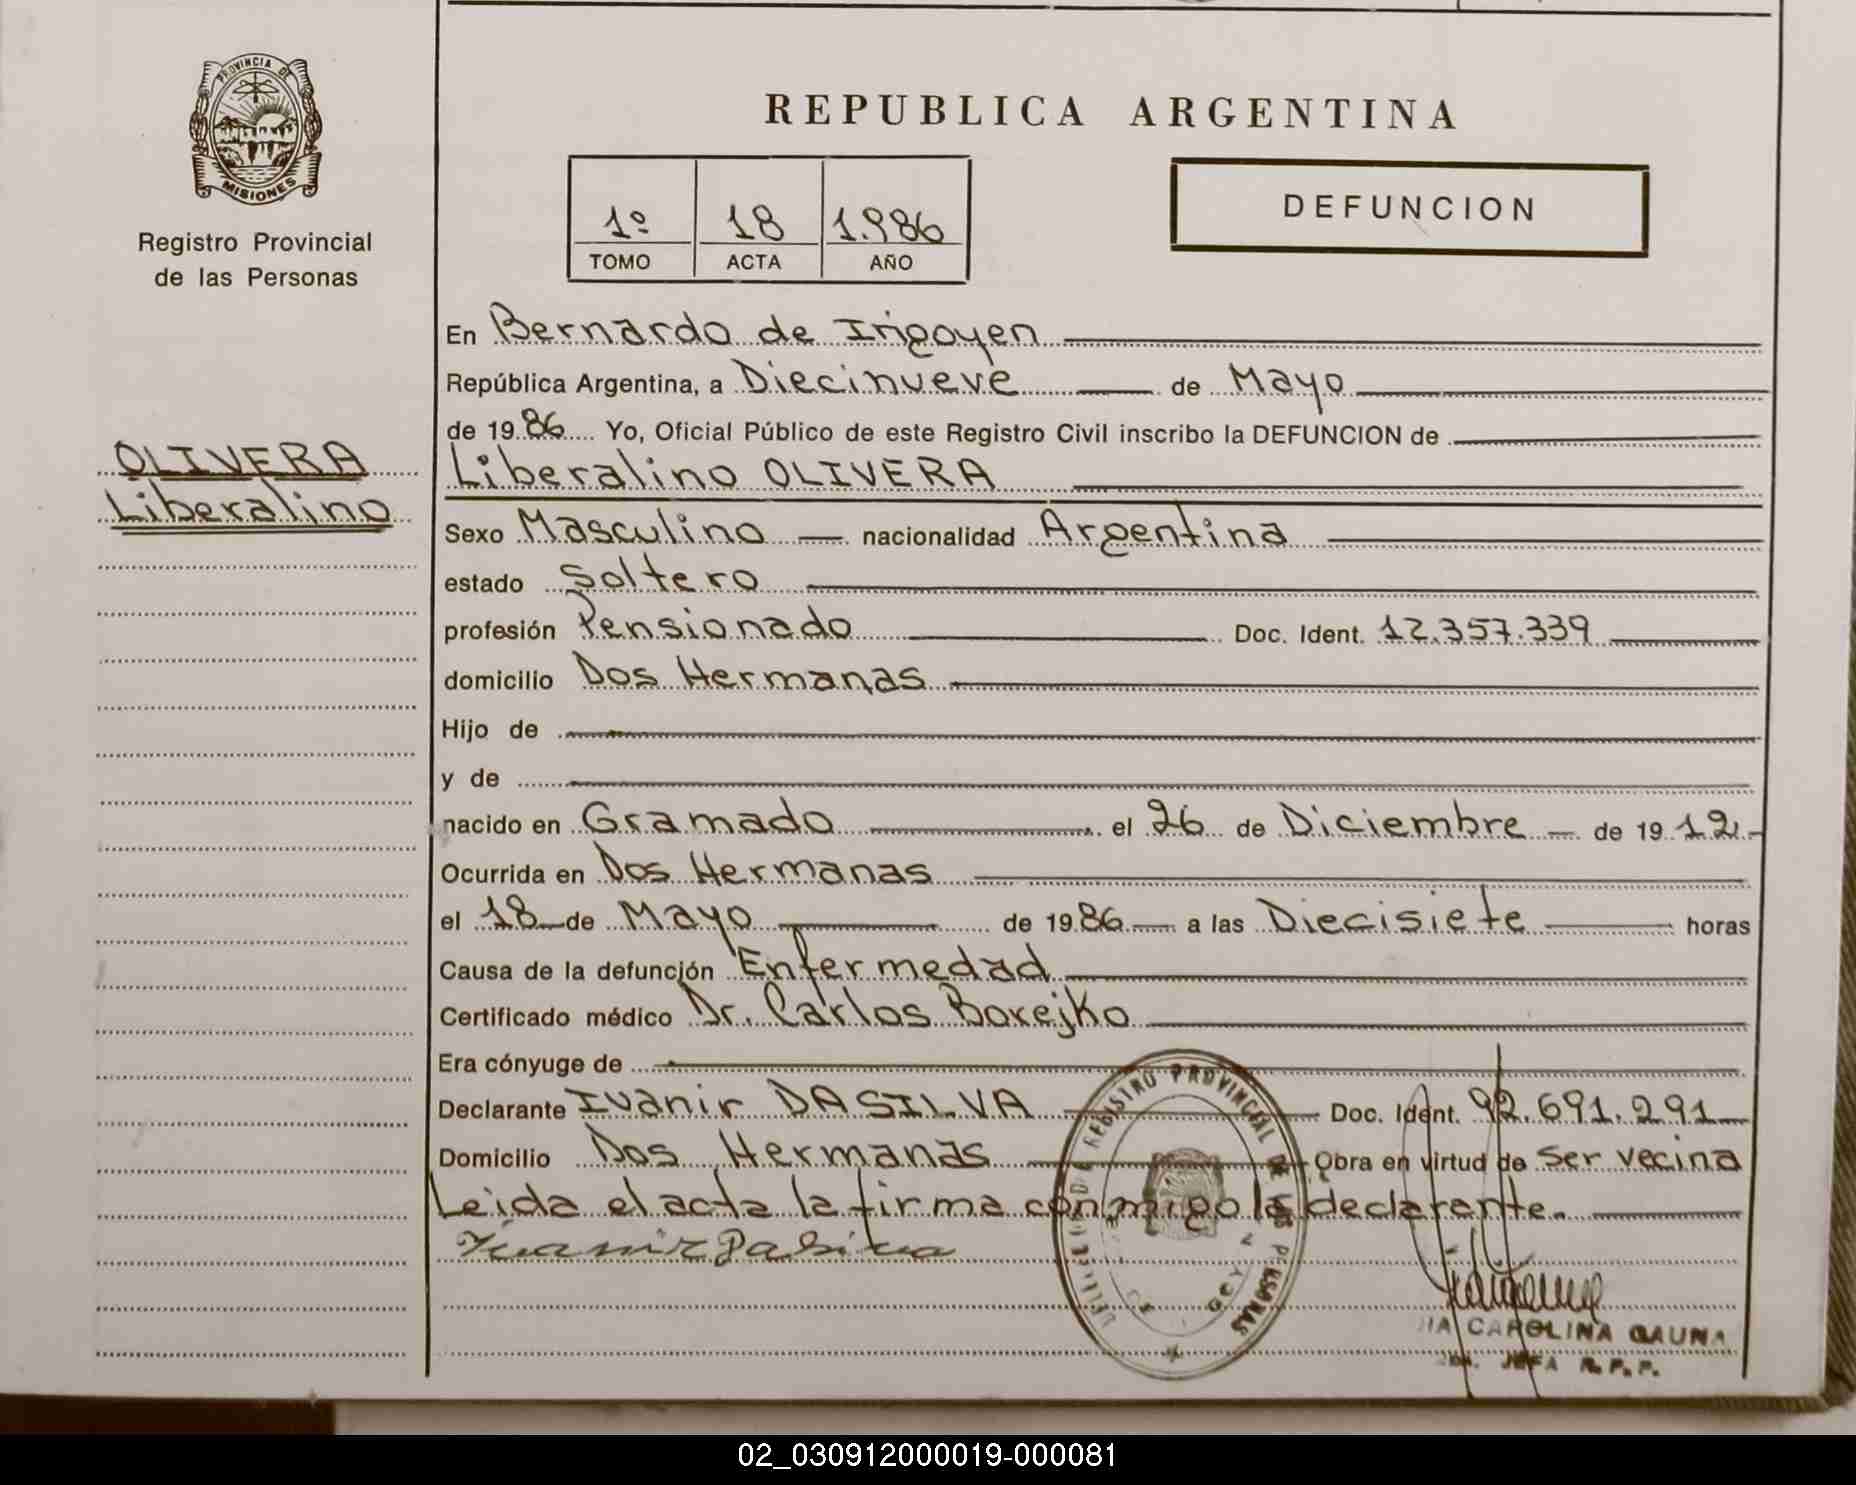 PROVINCIA DE
MISIONES
Registro Provincial
de las Personas
OLIVERA
Liberalino
REPUBLICA ARGENTINA
1º 18 1.986
TOMO ACTA AÑO
DEFUNCION
En Bernardo de Irigoyen
República Argentina, a Diecinueve de Mayo
de 1986 Yo, Oficial Público de este Registro Civil inscribo la DEFUNCION de
Liberalino OLIVERA
Sexo Masculino nacionalidad Argentina
estado Soltero
profesión Pensionado Doc. Ident. 12.357.339
domicilio Dos Hermanas
Hijo de
y de
nacido en Gramado el 26 de Diciembre de 1912.-
Ocurrida en Dos Hermanas
el 18 de Mayo de 1986 a las Diecisiete horas
Causa de la defunción Enfermedad
Certificado médico Dr. Carlos Borejko
Era cónyuge de
Declarante Ivanir DA SILVA Doc. Ident. 92.691.291
Domicilio Dos Hermanas Obra en virtud de Ser vecina
Leida el acta la firma conmigo la declarante.
Ivanir Da Silva
REGISTRO PROVINCIAL DE LAS PERSONAS
CAROLINA GAUNA
JEFA R.P.P.
02_030912000019-000081